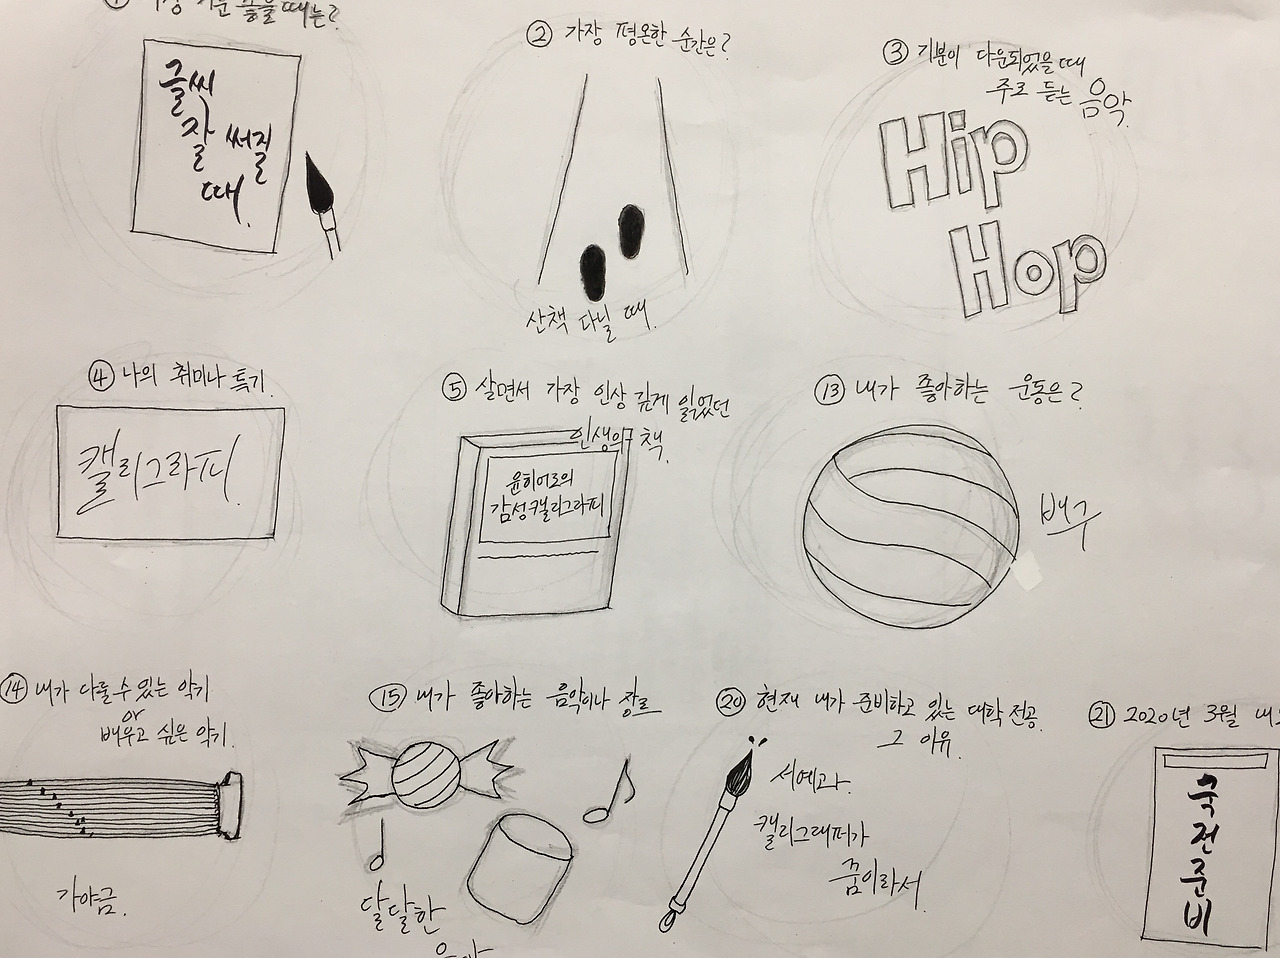 ① 가장 기분 좋을 때는?
글씨
잘 써질
때.
② 가장 평온한 순간은?
산책 다닐 때.
③ 기분이 다운되었을 때
주로 듣는 음악.
Hip
Hop
④ 나의 취미나 특기.
캘리그라피.
⑤ 살면서 가장 인상 깊게 읽었던
인생의 책.
윤히어로의
감성캘리그라피
⑬ 내가 좋아하는 운동은?
배구
⑭ 내가 다룰 수 있는 악기
or
배우고 싶은 악기.
가야금.
⑮ 내가 좋아하는 음악이나 장르
달달한
음악
⑳ 현재 내가 준비하고 있는 대학 전공.
그 이유.
서예과.
캘리그래퍼가
꿈이라서.
㉑ 2020년 3월
국
전
준
비